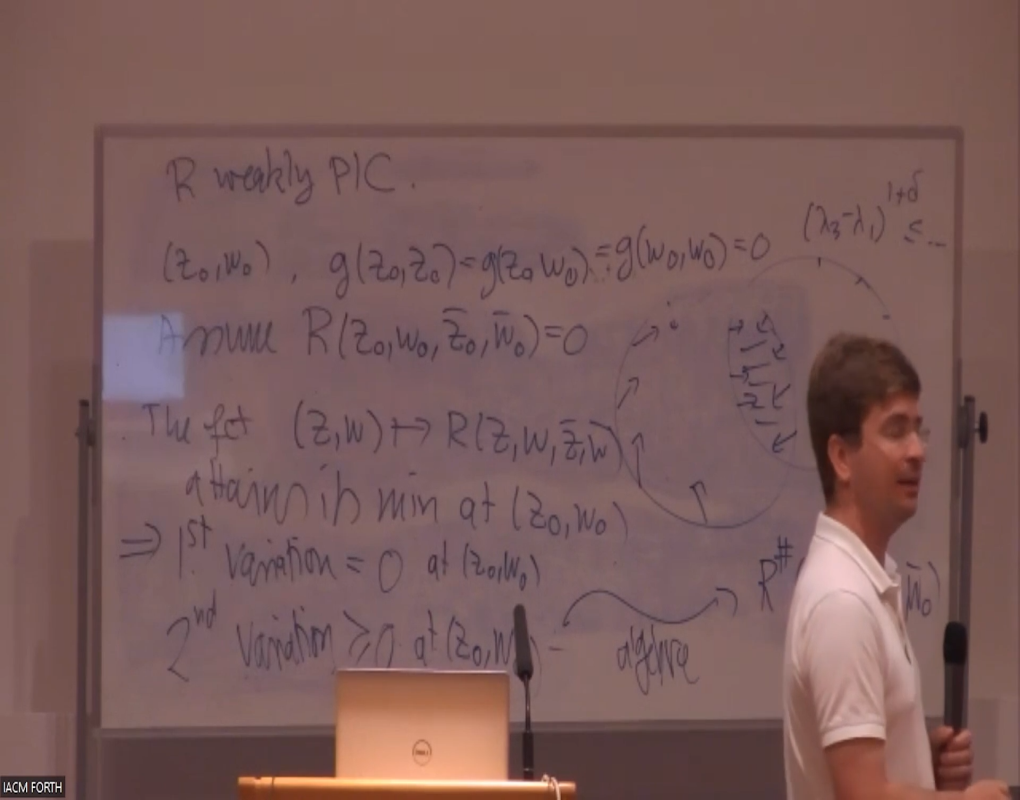 R weakly PIC.
(λ₃-λ₁)^{1+δ} ≤ ...
(z₀,w₀), g(z₀,z₀)=g(z₀,w₀)=g(w₀,w₀)=0
Assume R(z₀,w₀,z̄₀,w̄₀)=0
The fct (z,w) ↦ R(z,w,z̄,w̄)
attains its min at (z₀,w₀)
⇒ 1st variation = 0 at (z₀,w₀)
2nd variation ≥ 0 at (z₀,w
algebra
R^#
w̄₀)
DELL
IACM FORTH